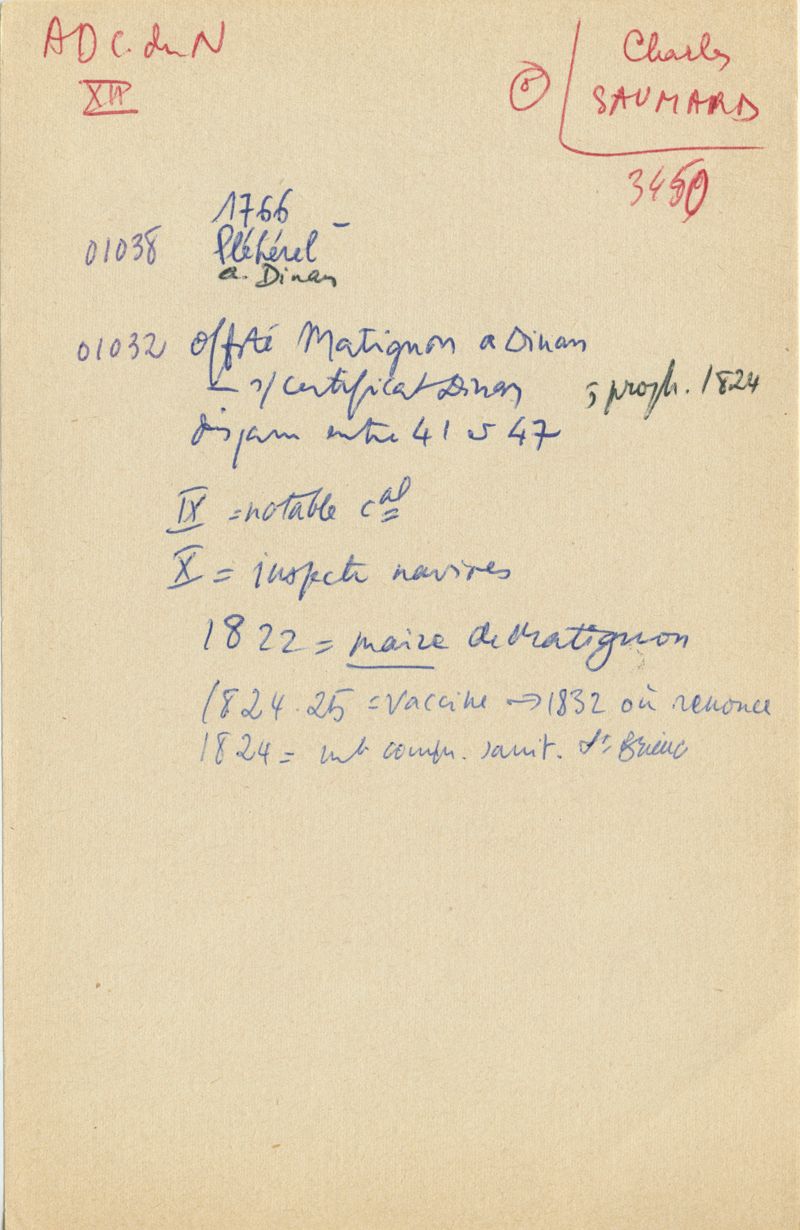 AD C. du N
XII
Charles
SAUMARD
3450
1766 -
01038 Pléhérel
a. Dinan
01032 offté Matignon a Dinan
— s/ certificat Dinan ; proph. 1824
dispara entre 41 et 47
IX = notable cal
X = inspecte navires
1822 = maire de Matignon
1824.25 = vaccine → 1832 où renonce
1824 = mb sanit. St Brieuc